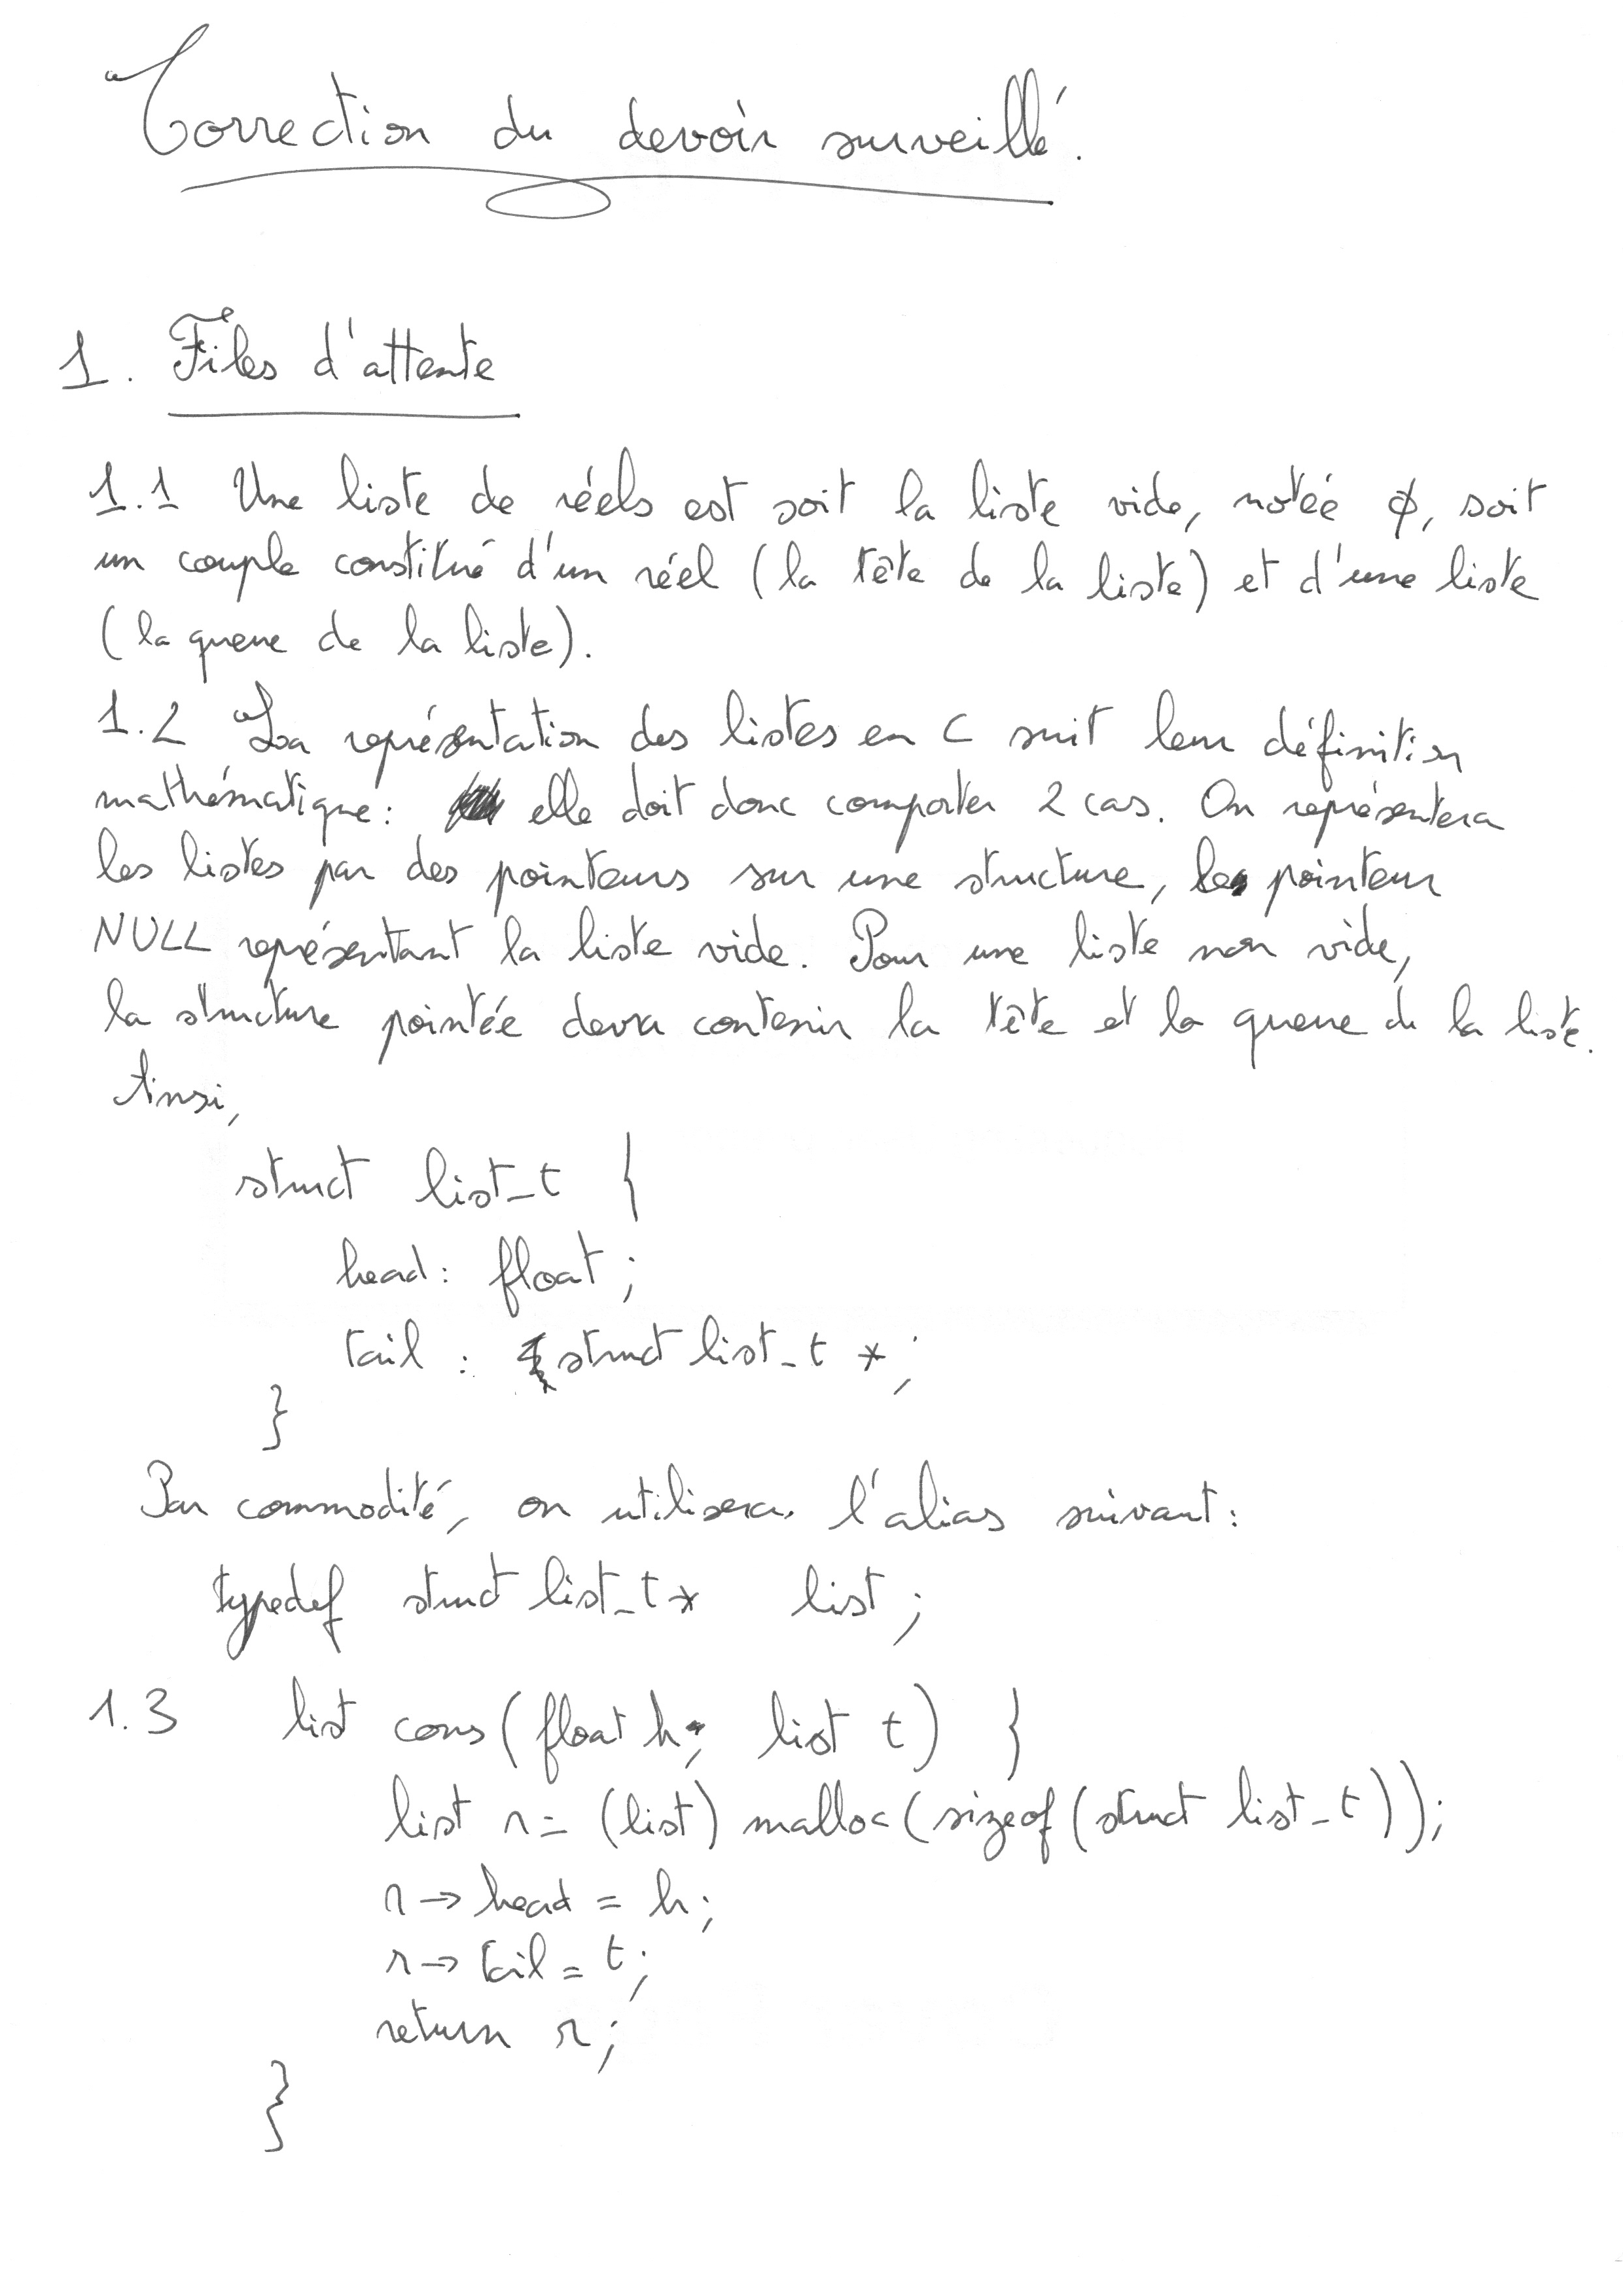 Correction du devoir surveillé.
1. Files d'attente
1.1 Une liste de réels est soit la liste vide, notée ø, soit
un couple constitué d'un réel (la tête de la liste) et d'une liste
(la queue de la liste).
1.2 La représentation des listes en C suit leur définition
mathématique: elle doit donc comporter 2 cas. On représentera
les listes par des pointeurs sur une structure, le pointeur
NULL représentant la liste vide. Pour une liste non vide,
la structure pointée devra contenir la tête et la queue de la liste.
Ainsi,
struct list_t {
head: float;
tail : struct list_t *;
}
Par commodité, on utilisera l'alias suivant:
typedef struct list_t* list;
1.3 list cons(float h, list t) {
list r = (list) malloc(sizeof(struct list_t));
r → head = h;
r → tail = t;
return r;
}